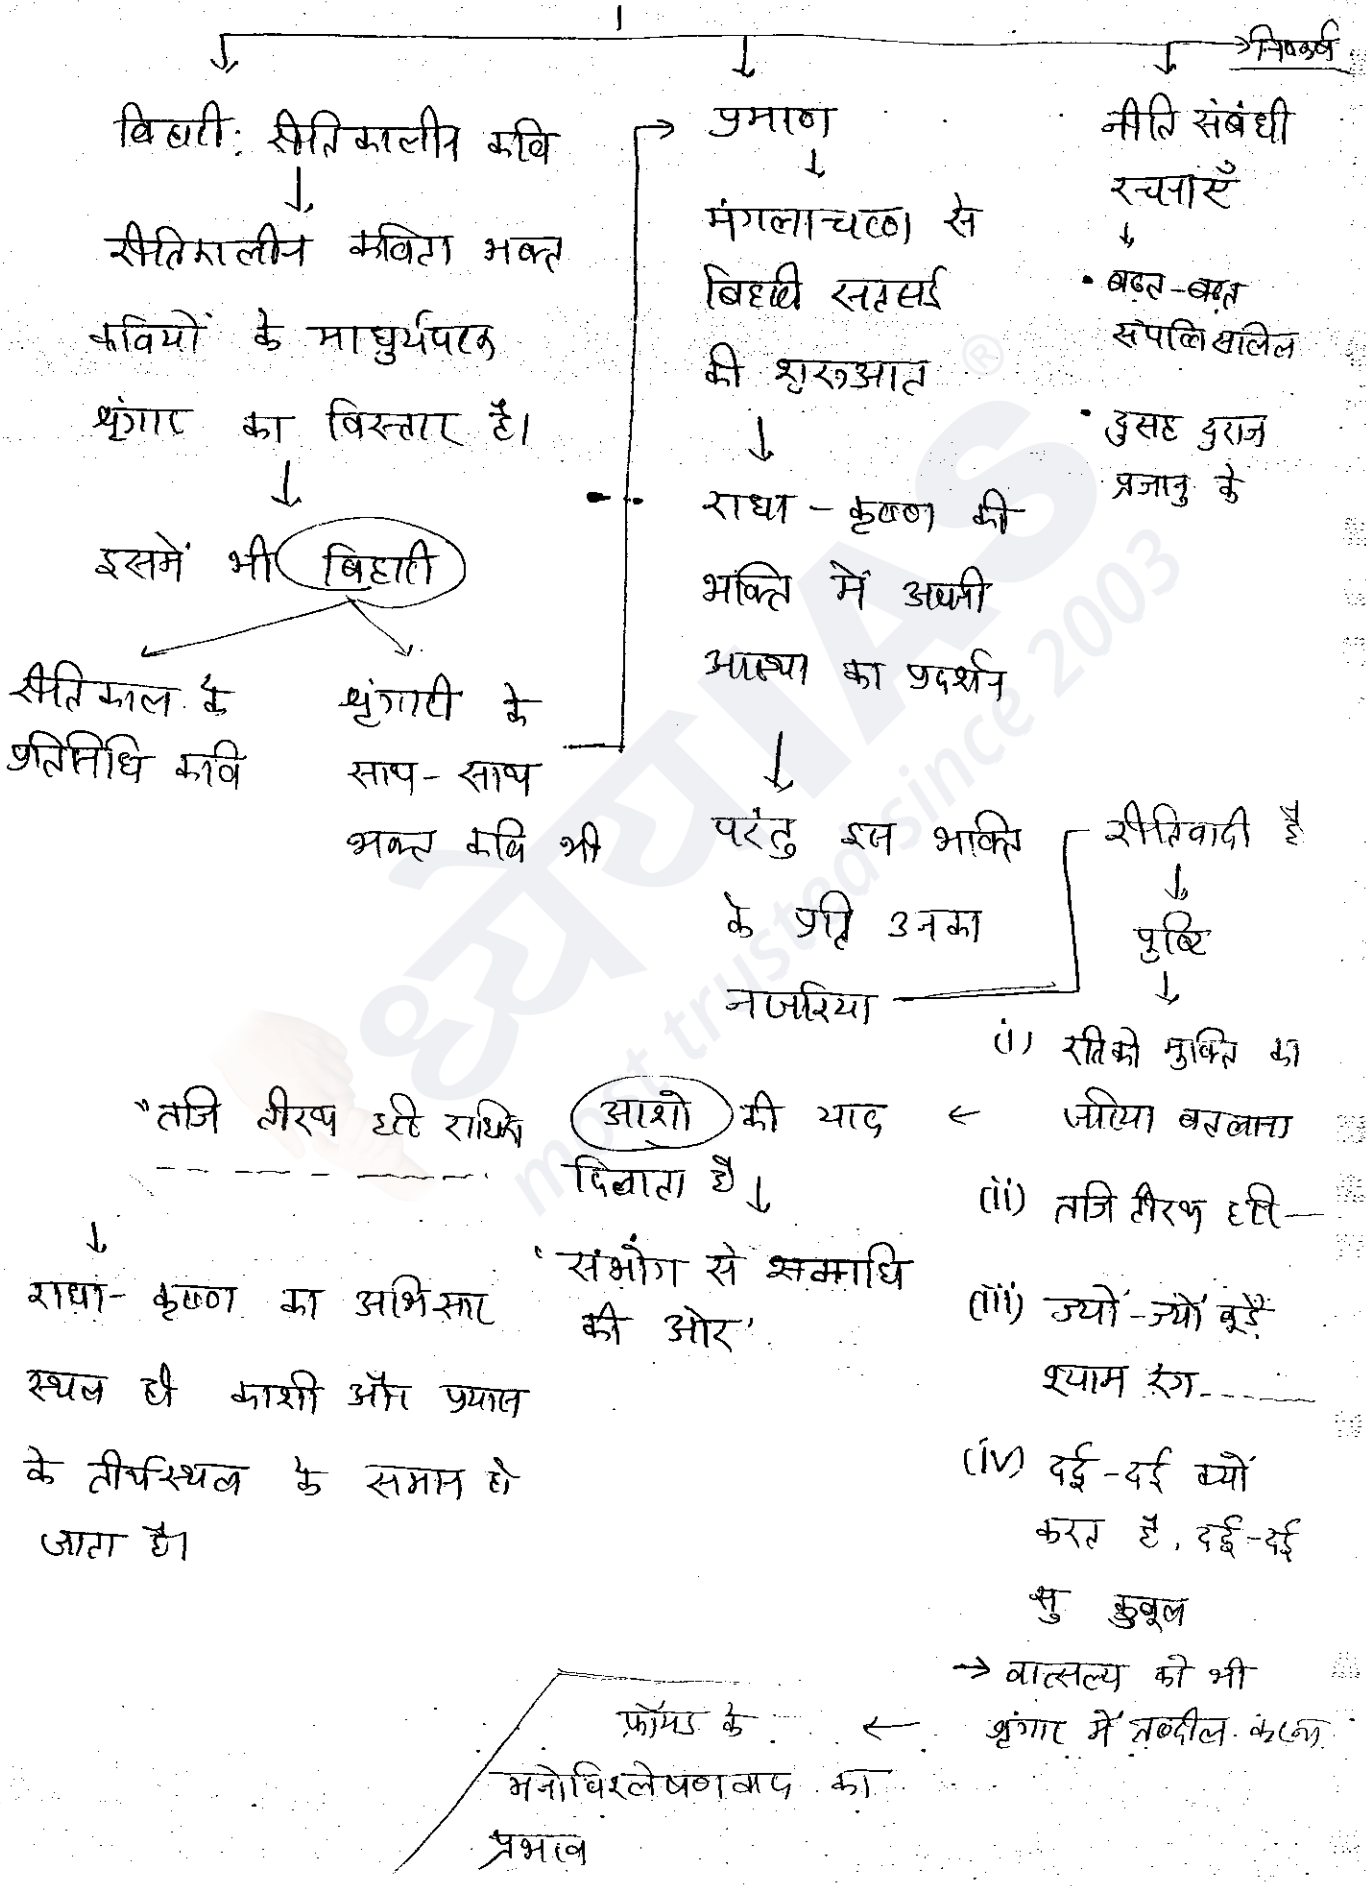 निष्कर्ष
बिहारी: रीतिकालीन कवि
रीतिकालीन कविता भक्त
कवियों के माधुर्यपरक
श्रृंगार का विस्तार है।
इसमें भी बिहारी
रीतिकाल के
प्रतिनिधि कवि
श्रृंगारी के
साथ-साथ
भक्त कवि भी
प्रमाण
मंगलाचरण से
बिहारी सतसई
की शुरुआत
राधा-कृष्ण की
भक्ति में अपनी
आस्था का प्रदर्शन
परंतु इस भक्ति
के प्रति उनका
नजरिया
नीति संबंधी
रचनाएँ
• बढ़त-बढ़त
संपत्ति सलिल
• दुसह दुराज
प्रजानु के
रीतिवादी है
पुष्टि
(i) रति को मुक्ति का
जरिया बतलाना
(ii) तजि तीरथ हरि—
(iii) ज्यों-ज्यों बूड़ै
श्याम रंग------
(iv) दई-दई क्यों
करत है, दई-दई
सु कुबूल
→ वात्सल्य को भी
श्रृंगार में तब्दील करना
आशो की याद
दिलाता है
'संभोग से समाधि
की ओर'
"तजि तीरथ हरि राधिका
राधा-कृष्ण का अभिसार
स्थल ही काशी और प्रयाग
के तीर्थस्थल के समान हो
जाता है।
फ्रॉयड के
मनोविश्लेषणवाद का
प्रभाव
ध्येय IAS ®
most trusted since 2003